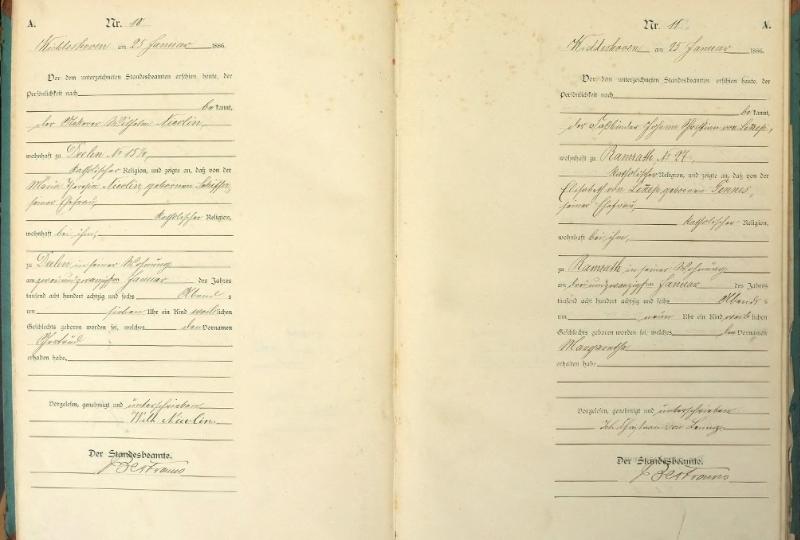 A.
Nr. 10
Widdeshoven am 25 Januar 1886.
Vor dem unterzeichneten Standesbeamten erschien heute, der
Persönlichkeit nach
be kannt,
der Ackerer Wilhelm Nicolin,
wohnhaft zu Deelen No
katholischer Religion, und zeigte an, daß von der
Maria Nicolin gebornen
seiner Ehefrau,
katholischer Religion,
wohnhaft bei ihm,
zu Deelen in seiner Wohnung
am zweiundzwanzigsten Januar des Jahres
tausend acht hundert achtzig und sechs Abends
um sieben Uhr ein Kind weiblichen
Geschlechts geboren worden sei, welches den Vornamen
Gertrud
erhalten habe.
Vorgelesen, genehmigt und unterschrieben
Wilh. Nicolin.
Der Standesbeamte.
Bestrams
Nr. 11
A.
Widdeshoven am 25 Januar 1886.
Vor dem unterzeichneten Standesbeamten erschien heute, der
Persönlichkeit nach
be kannt,
der Faßbinder Johann Christian von
wohnhaft zu Ramrath No 27,
katholischer Religion, und zeigte an, daß von der
Elisabeth von gebornen Gennes,
seiner Ehefrau,
katholischer Religion,
wohnhaft bei ihm,
zu Ramrath in seiner Wohnung
am dreiundzwanzigsten Januar des Jahres
tausend acht hundert achtzig und sechs Abends
um neun Uhr ein Kind weiblichen
Geschlechts geboren worden sei, welches den Vornamen
Margaretha
erhalten habe
Vorgelesen, genehmigt und unterschrieben
Joh. Christian von
Der Standesbeamte.
Bestrams